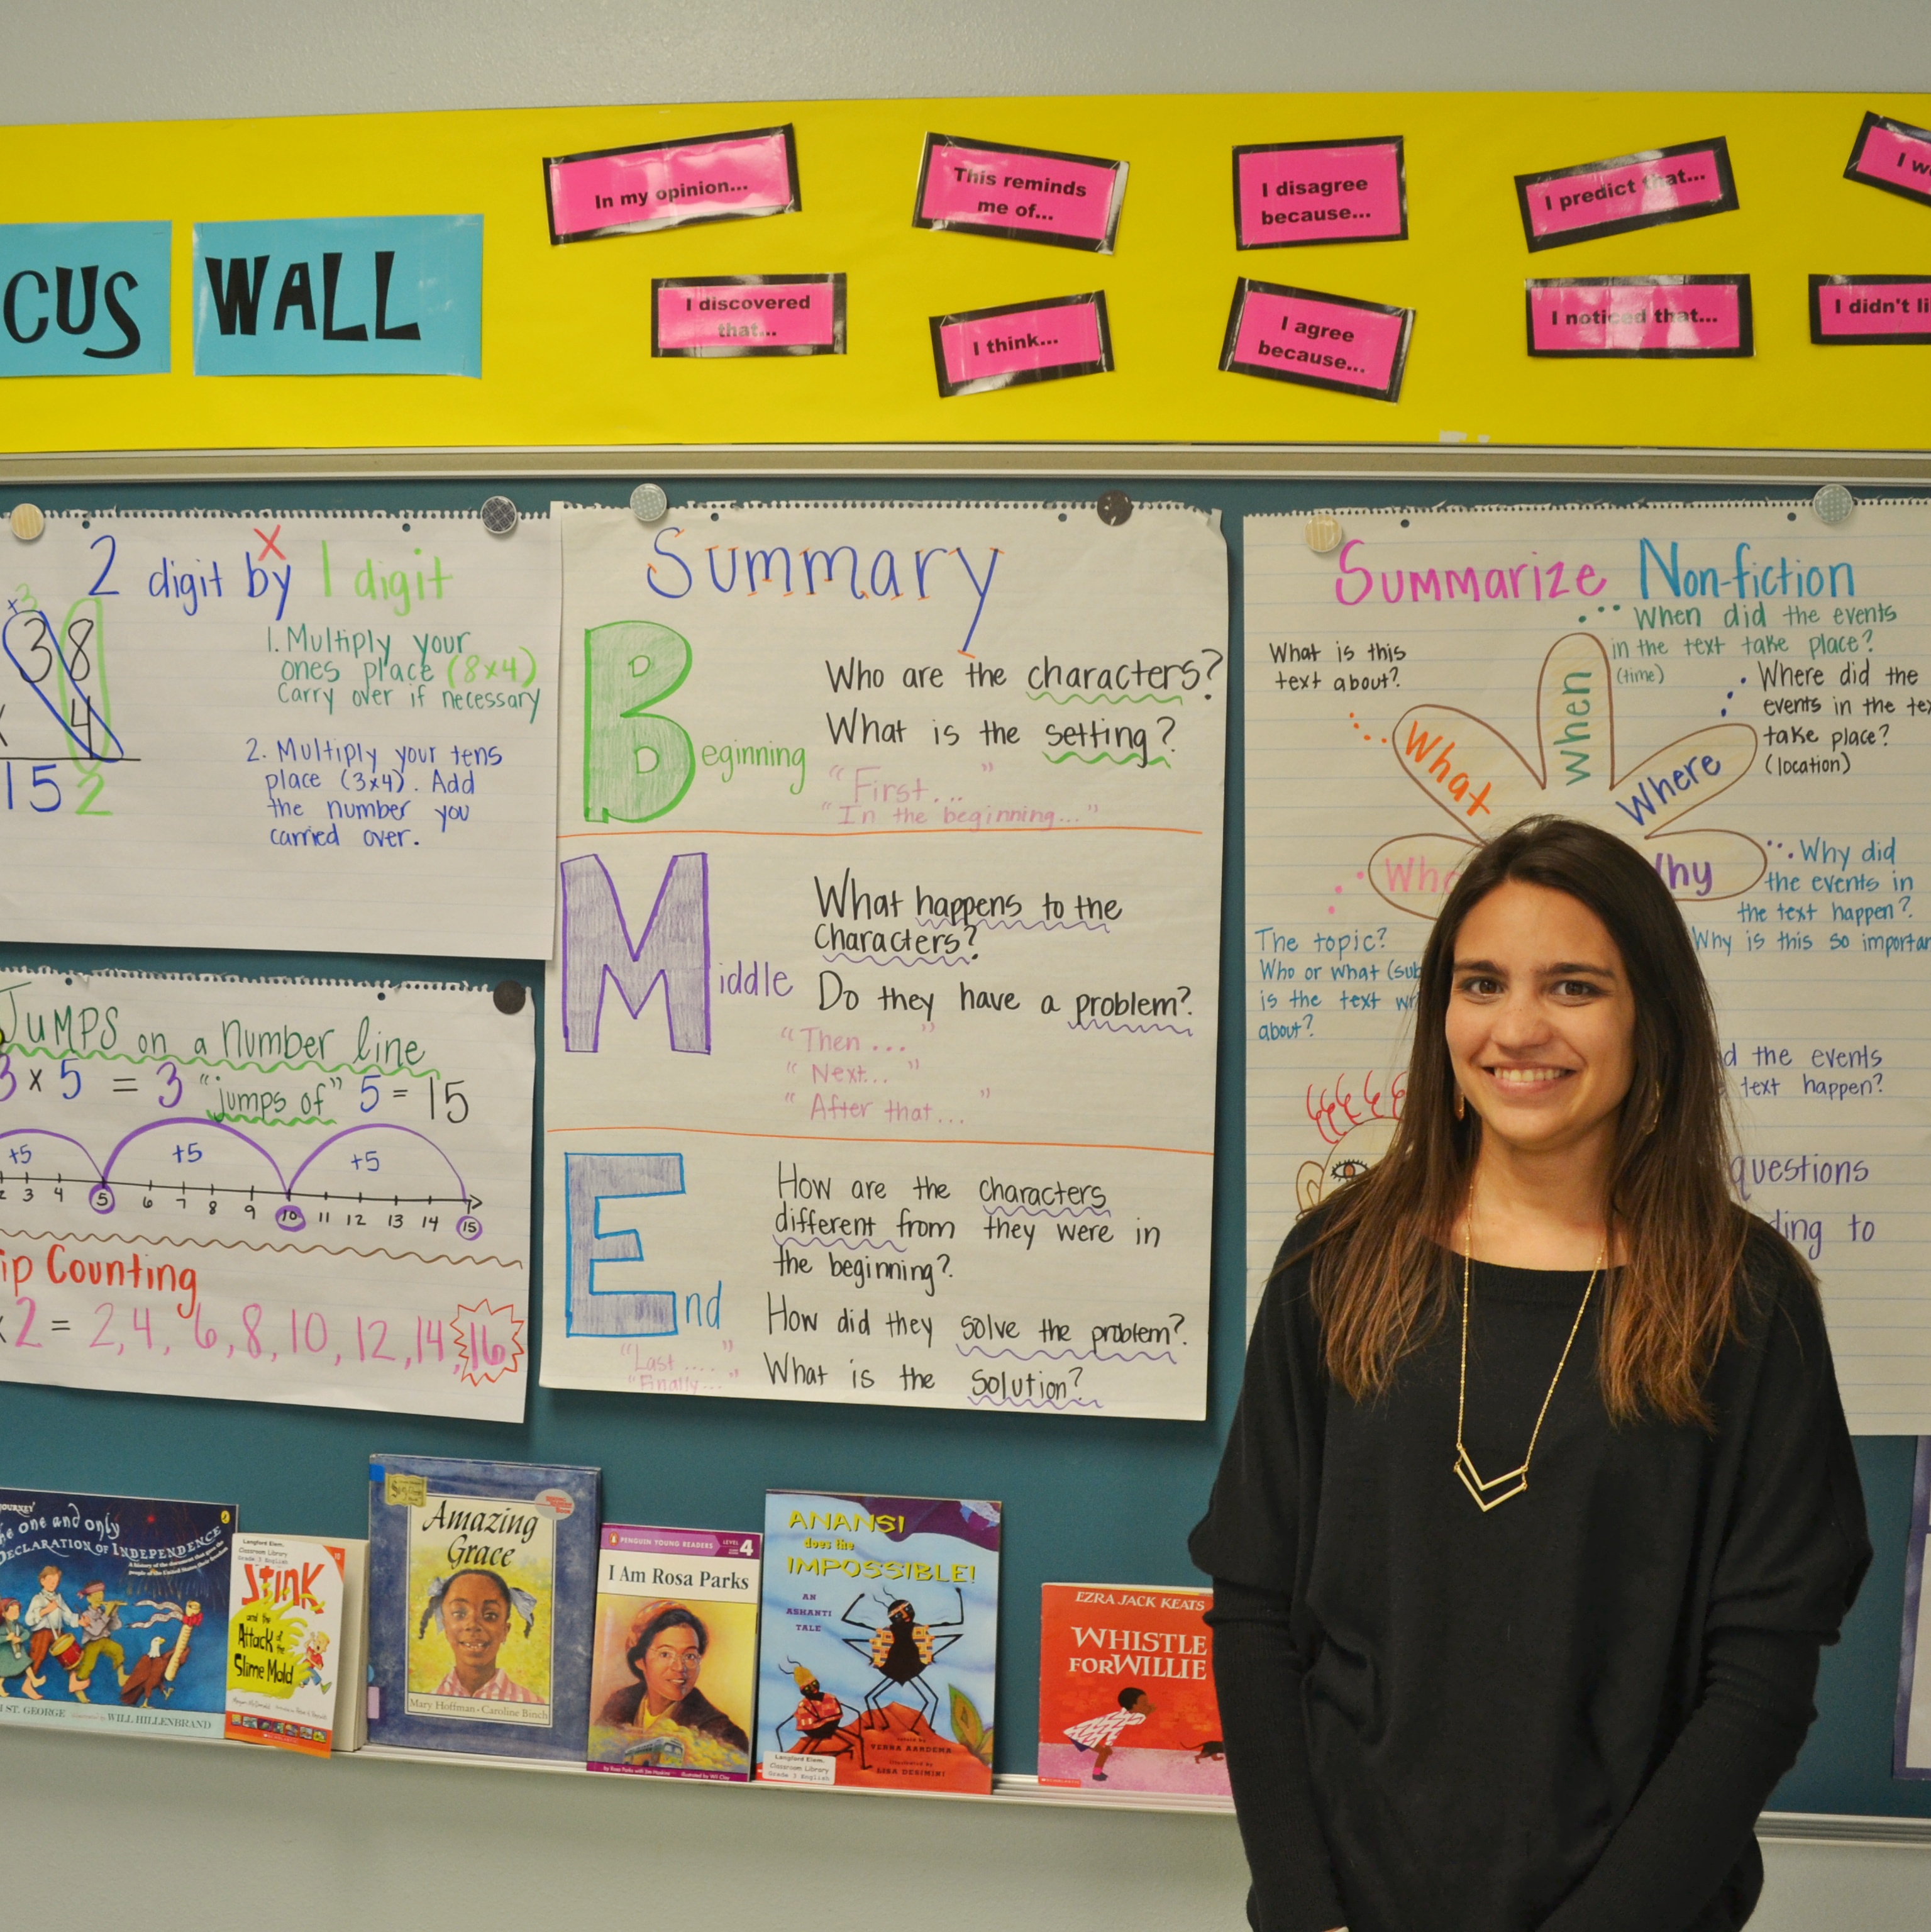 CUS WALL
In my opinion...
This reminds
me of...
I disagree
because...
I predict that...
I discovered
that...
I think...
I agree
because...
I noticed that...
I didn't
2 digit by 1 digit
x
+3
38
4
152
1. Multiply your
ones place (8x4)
Carry over if necessary
2. Multiply your tens
place (3x4). Add
the number you
carried over.
Jumps on a number line
3 x 5 = 3 "jumps of" 5 = 15
+5 +5 +5
2 3 4 5 6 7 8 9 10 11 12 13 14 15
ip Counting
x2 = 2, 4, 6, 8, 10, 12, 14, 16
Summary
Beginning
Who are the characters?
What is the setting?
"First..."
"In the beginning..."
Middle
What happens to the
characters?
Do they have a problem?
"Then ..."
"Next..."
"After that..."
End
How are the characters
different from they were in
the beginning?
How did they solve the problem?
What is the solution?
"Last ...."
"Finally..."
Summarize Non-fiction
When did the events
in the text take place?
(time)
What is this
text about?
Where did the
events in the
take place?
(location)
What
When
Where
Why did
the events in
the text happen?
Why is this so
The topic?
Who or what
is the text
about?
the events
text happen?
questions
to
JOURNEY
one and only
DECLARATION OF INDEPENDENCE
ST. GEORGE
WILL HILLENBRAND
Langford Elem.
Classroom Library
Grade 3 English
STINK
and the
Attack of the
Slime Mold
Amazing
Grace
Mary Hoffman - Caroline Binch
PENGUIN YOUNG READERS
LEVEL
4
I Am Rosa Parks
ANANSI
does the
IMPOSSIBLE!
AN
ASHANTI
TALE
retold by
VERNA AARDEMA
illustrated by
LISA DESIMINI
Langford Elem.
Classroom Library
Grade 3 English
EZRA JACK KEATS
WHISTLE
FOR WILLIE